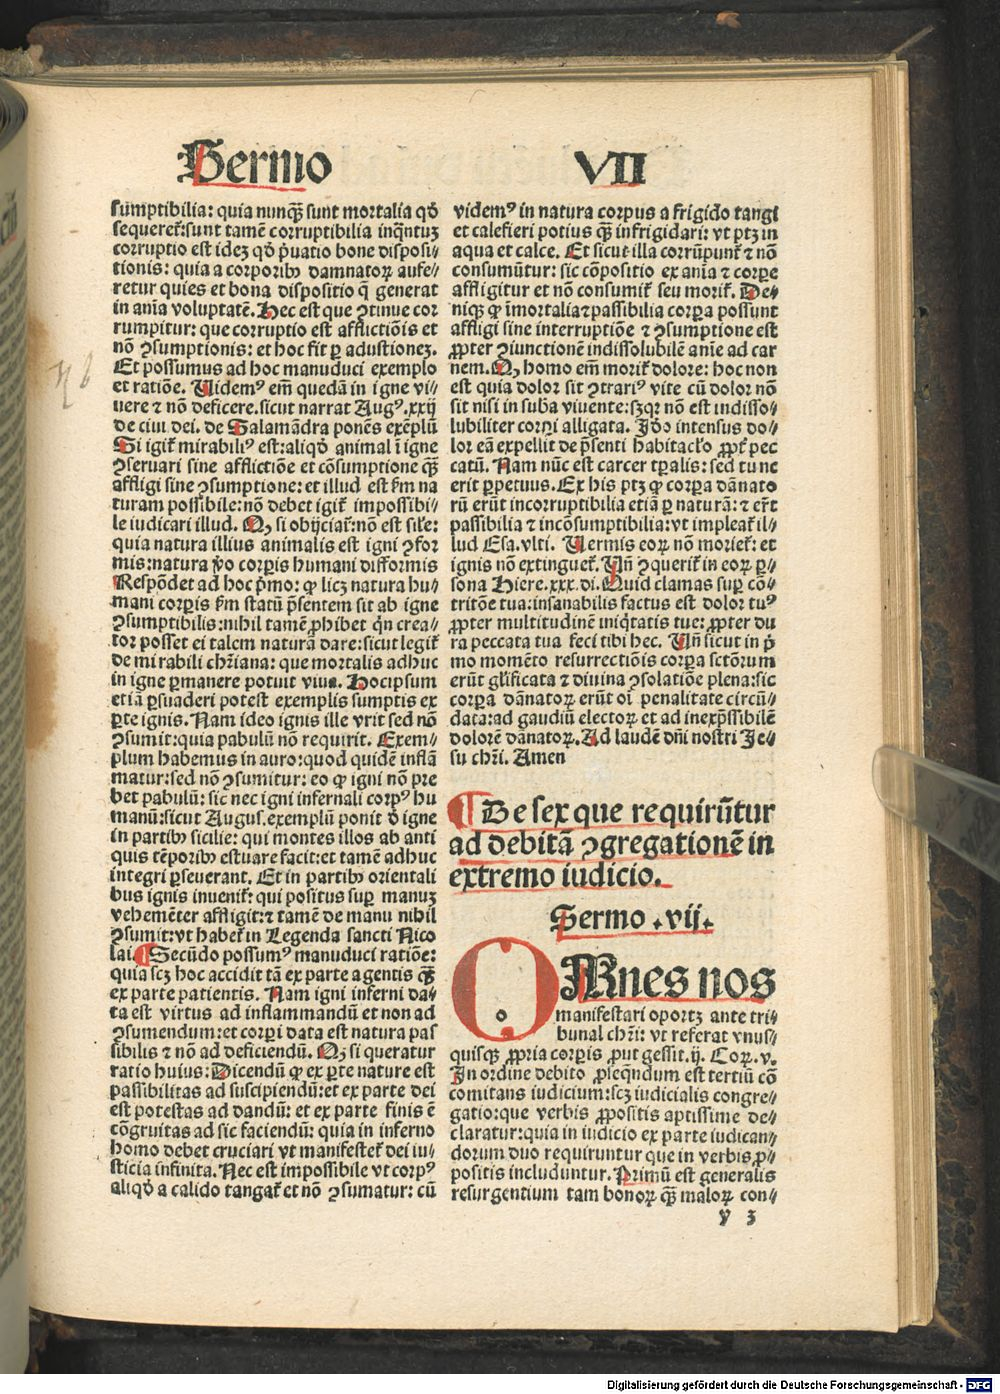 Sermo VII
sumptibilia: quia nunq̃ sunt mortalia qď
sequeret̃: sunt tamē corruptibilia inq̃ntuꝫ
corruptio est ideꝫ qď p̃uatio bone disposi⸗
tionis: quia a corporibꝰ damnatoꝝ aufe⸗
retur quies et bona dispositio q̄ generat
in aīa voluptatē. Hec est que ꝯtinue cor
rumpitur: que corruptio est afflictiōis et
nō ꝯsumptionis: et hoc fit ꝑ adustioneꝫ.
Et possumus ad hoc manuduci exemplo
et ratiōe. Uidemꝰ em̄ quedā in igne vi⸗
uere ⁊ nō deficere. sicut narrat Augꝰ. xxij
de ciui. dei. de Salamādra ponēs exēplū
Si igit̃ mirabiliꝰ est: aliqď animal ī igne
ꝯseruari sine afflictiōe et cōsumptione q̃ꝫ
affligi sine ꝯsumptione: et illud est ẜm na
turam possibile: nō debet igit̃ impossibi⸗
le iudicari illud. Qꝫ si obijciat̃: nō est sile:
quia natura illius animalis est igni ꝯfor
mis: natura ṽo corꝑis humani difformis
Respōdet ad hoc p̄mo: ꝙ licꝫ natura hu⸗
mani corꝑis ẜm statū p̄sentem sit ab igne
ꝯsumptibilis: nihil tamē ꝓhibet q̄n crea⸗
tor posset ei talem naturā dare: sicut legit̃
de mirabili chr̄iana: que mortalis adhuc
in igne ꝑmanere potuit viua. Hoc ipsum
etiā ꝑsuaderi potest exemplis sumptis ex
ꝑte ignis. Nam ideo ignis ille vrit sed nō
ꝯsumit: quia pabulū nō requirit. Exem⸗
plum habemus in auro: quod quidē inflā
matur: sed nō ꝯsumitur: eo ꝙ igni nō pre
bet pabulū: sic nec igni infernali corpꝰ hu
manū: sicut Augus. exemplū ponit ď igne
in partibꝰ sicilie: qui montes illos ab anti
quis tēporibꝰ estuare facit: et tamē adhuc
integri ꝑseuerant. Et in partibꝰ orientali
bus ignis inuenit̃: qui positus suꝑ manuꝫ
vehemēter affligit: ⁊ tamē de manu nihil
ꝯsumit: vt habet̃ in Legenda sancti Nico
lai. ¶ Secūdo possumꝰ manuduci ratiōe:
quia scꝫ hoc accidit tā ex parte agentis q̃ꝫ
ex parte patientis. Nam igni inferni da⸗
ta est virtus ad inflammandū et non ad
ꝯsumendum: et corꝑi data est natura pas
sibilis ⁊ nō ad deficiendū. Qꝫ si queratur
ratio huius: Dicendū ꝙ ex ꝑte nature est
passibilitas ad suscipiendū: et ex parte dei
est potestas ad dandū: et ex parte finis ē
cōgruitas ad sic faciendū: quia in inferno
homo debet cruciari vt manifestet̃ dei iu⸗
sticia infinita. Nec est impossibile vt corpꝰ
aliqď a calido tangat̃ et nō ꝯsumatur: cū
videmꝰ in natura corpus a frigido tangi
et calefieri potius q̃ꝫ infrigidari: vt ptꝫ in
aqua et calce. Et sicut illa corrūpunt̃ ⁊ nō
consumūtur: sic cōpositio ex aīa ⁊ corꝑe
affligitur et nō consumit̃ seu morit̃. De⸗
niqꝫ ꝙ īmortalia ⁊ passibilia corꝑa possunt
affligi sine interruptiōe ⁊ ꝯsumptione est
ꝓpter ꝯiunctionē indissolubilē anīe ad car
nem. Qꝫ homo em̄ morit̃ dolore: hoc non
est quia dolor sit ꝯtrariꝰ vite cū dolor nō
sit nisi in suba viuente: sꝫ qꝛ nō est indisso⸗
lubiliter corꝑi alligata. Iďo intensus do⸗
lor eā expellit de p̄senti habitacl̃o ꝓpt̃ pec
catū. Nam nūc est carcer tꝑalis: sed tunc
erit ꝑpetuus. Ex his ptꝫ ꝙ corꝑa dānato
rū erūt incorruptibilia etiā ꝑ naturā: ⁊ er̄t
passibilia ⁊ incōsumptibilia: vt impleat̃ il⸗
lud Esa. vlti. Uermis eoꝝ nō moriet̃: et
ignis nō extinguet̃. Un̄ ꝯquerit̃ in eoꝝ ꝑ⸗
sona Hiere. xxx. di. Quid clamas suꝑ cō⸗
tritōe tua: insanabilis factus est dolor tuꝰ
ꝓpter multitudinē iniq̃tatis tue: ꝓpter du
ra peccata tua feci tibi hec. Un̄ sicut in p̄
mo momēto resurrectiōis corꝑa sctōrum
erūt gl̃ificata ⁊ diuina ꝯsolatiōe plena: sic
corꝑa dānatoꝝ erūt oī penalitate circū⸗
data: ad gaudiū electoꝝ et ad inexp̄ssibilē
dolorē dānatoꝝ. Ad laudē dn̄i nostri Je⸗
su chr̄i. Amen
¶ De sex que requirūtur
ad debitā ꝯgregationē in
extremo iudicio.
Sermo .vij.
OMnes nos
manifestari oportꝫ ante tri⸗
bunal chr̄i: vt referat vnus⸗
quisqꝫ ꝓpria corꝑis ꝓut gessit. ij. Coꝝ. v.
In ordine debito ꝓseq̄ndum est tertiū cō
comitans iudicium: scꝫ iudicialis congre⸗
gatio: que verbis ꝓpositis aptissime de⸗
claratur: quia in iudicio ex parte iudican⸗
dorum duo requiruntur que in verbis ꝓ⸗
positis includuntur. Primū est generalis
resurgentium tam bonoꝝ q̃ꝫ maloꝝ con⸗
y 3
Digitalisierung gefördert durch die Deutsche Forschungsgemeinschaft - DFG